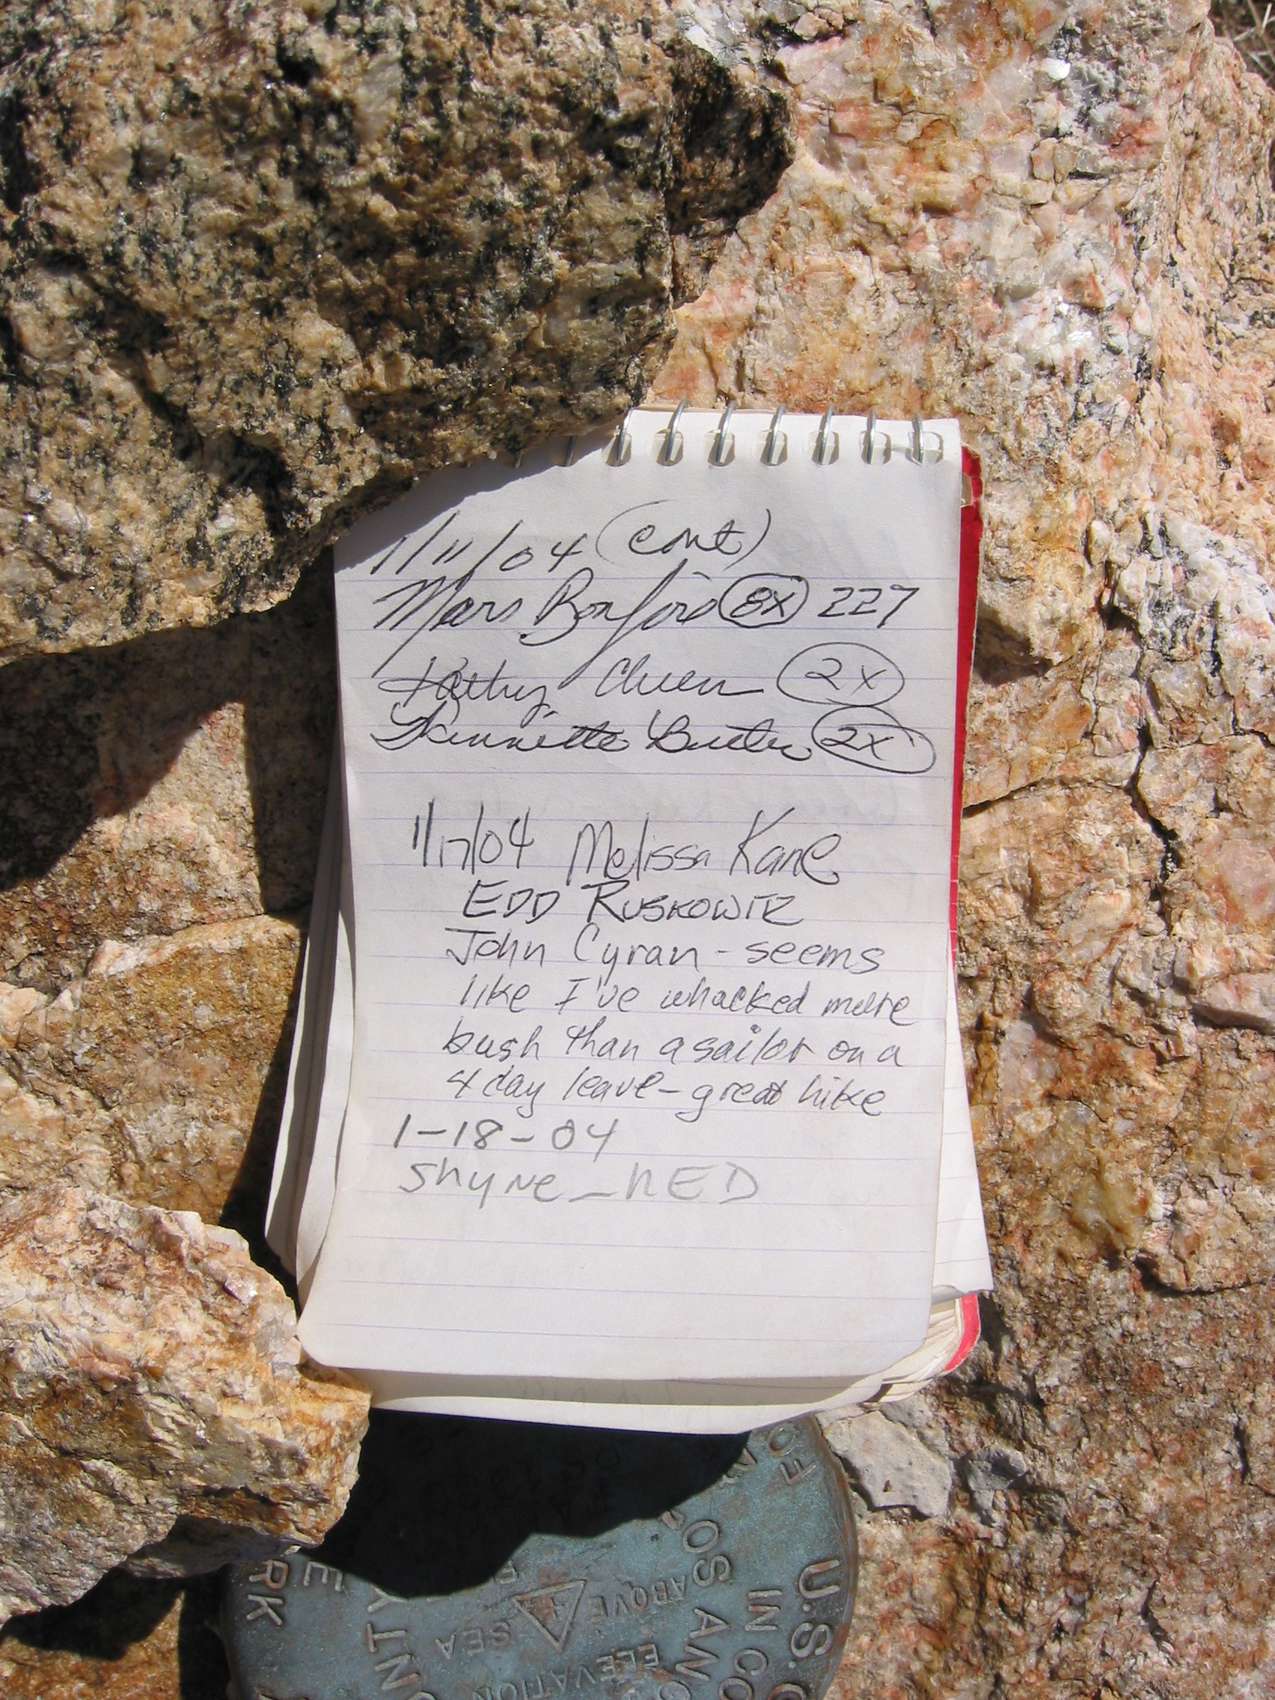 1/11/04 (cont)
Mars Bonfire 8X 227
Kathy Cheever 2X
2X
1/17/04 Melissa Kane
EDD RUSKOWITZ
John Cyran - seems
like I've whacked more
bush than a sailor on a
4 day leave - great hike
1-18-04
Shyne_NED
U.S.
IN CO
LOS ANG
ABOVE SEA
ELEVATION
NTY
RK
OF